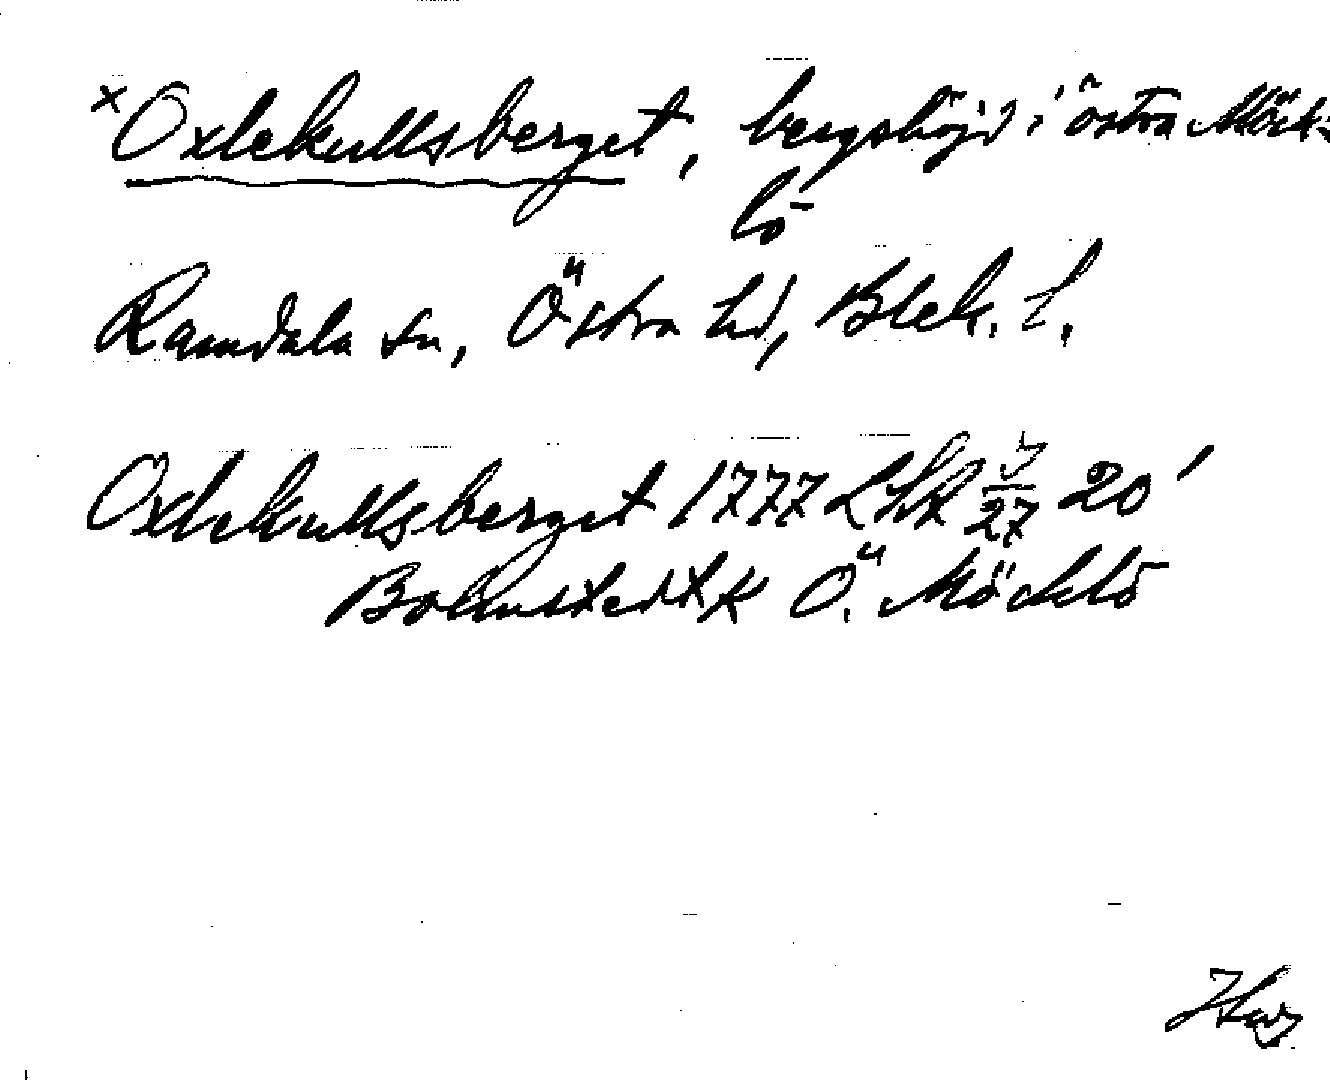 × Oxlekullsberget, bergshöjd i östra Möck-
lö
Ramdala sn, Östra hd, Blek. l.
Oxlekullsberget 1777 LSA 7/27 20'
Bolmstedt K Ö. Möcklö